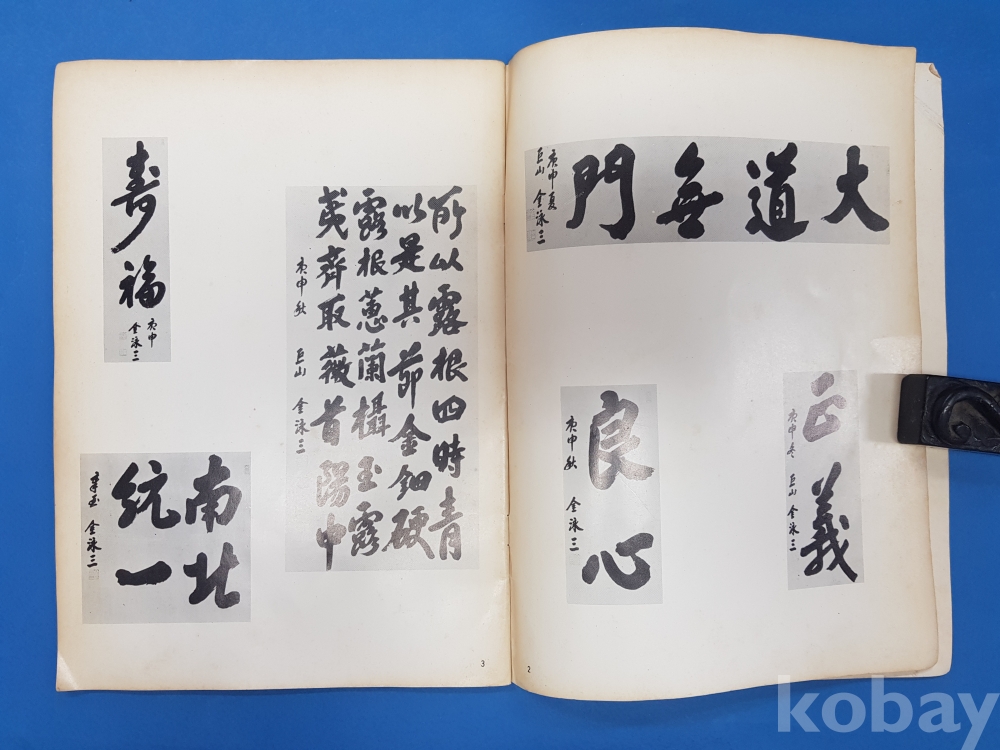 大道無門
庚申夏
巨山 金泳三
正義
庚申冬 巨山 金泳三
良心
庚申秋 金泳三
2
所以露根四時青
以是其節金鈿硬
露根蕙蘭欇玉露
夷齊取薇首陽中
庚申秋 巨山 金泳三
壽福
庚申
金泳三
南北
統一
辛酉 金泳三
3
kobay